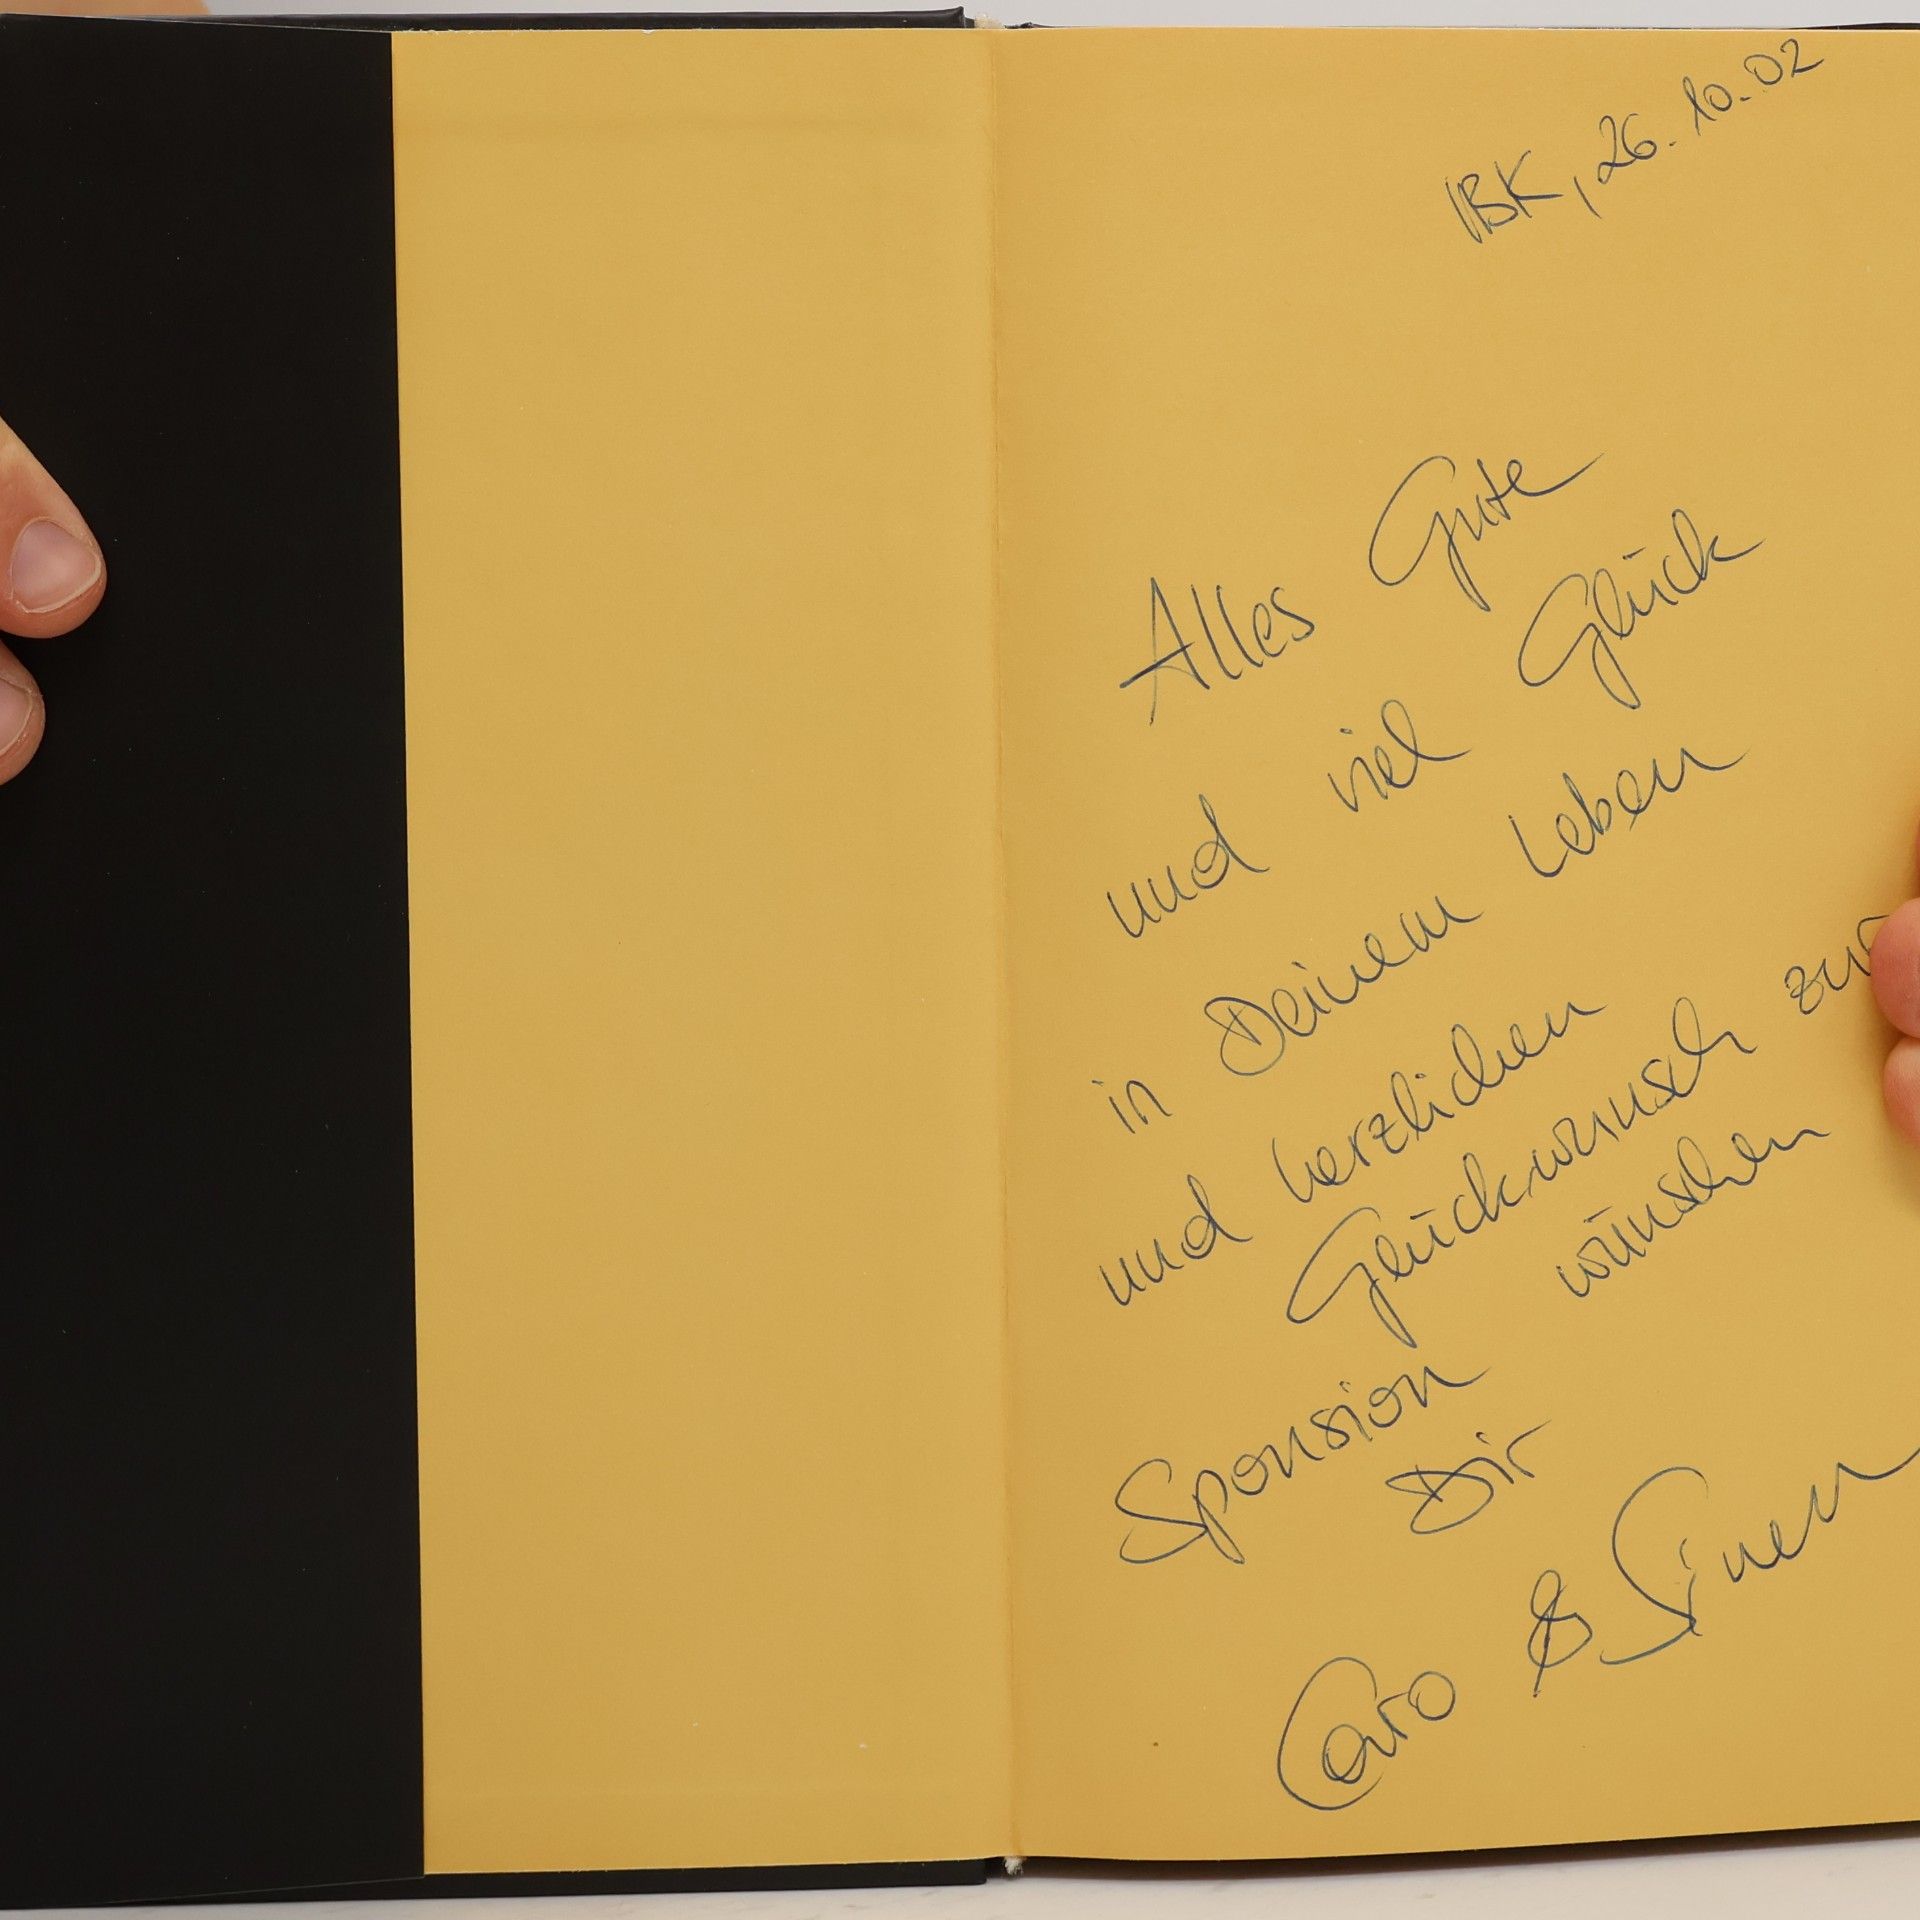 IBK, 26.10.02
Alles Gute
und viel Glück
in Deinem Leben
und herzlichen
Glückwunsch zur
Sponsion wünschen
Dir
Caro & Sinem